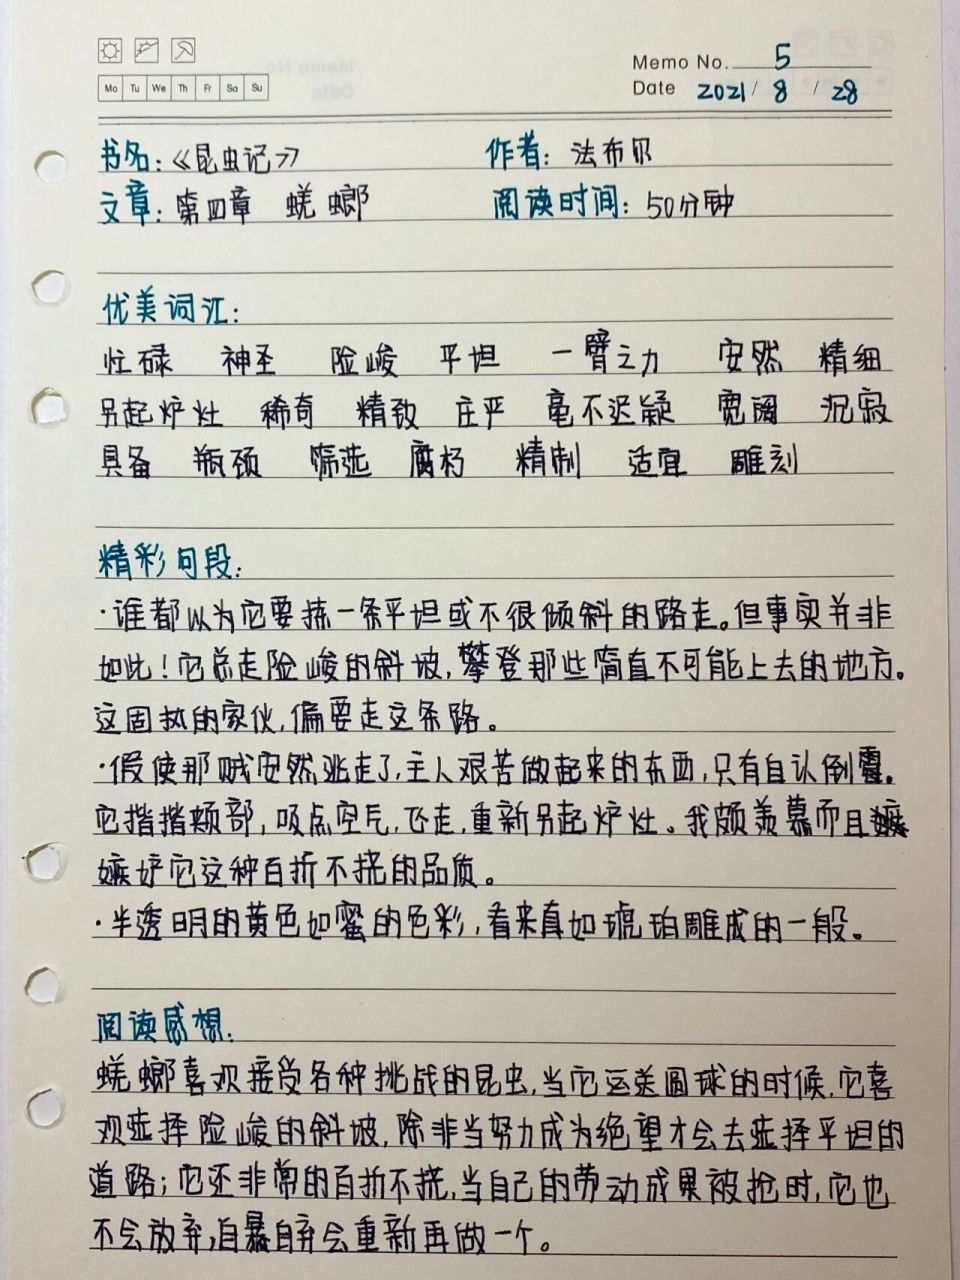 Memo No. 5
Mo Tu We Th Fr Sa Su
Date 2021 / 8 / 28
书名:《昆虫记》 作者: 法布尔
文章: 第四章 蜣螂 阅读时间: 50分钟
优美词汇:
忙碌 神圣 险峻 平坦 一臂之力 安然 精细
另起炉灶 稀奇 精致 庄严 毫不迟疑 宽阔 沉寂
具备 瓶颈 筛选 腐朽 精制 适宜 雕刻
精彩句段:
·谁都以为它要拣一条平坦或不很倾斜的路走。但事实并非
如此!它总走险峻的斜坡,攀登那些简直不可能上去的地方。
这固执的家伙,偏要走这条路。
·假使那贼安然逃走了,主人艰苦做起来的东西,只有自认倒霉。
它揩揩颊部,吸点空气,飞走,重新另起炉灶。我颇羡慕而且
嫉妒它这种百折不挠的品质。
·半透明的黄色如蜜的色彩,看来真如琥珀雕成的一般。
阅读感想:
蜣螂喜欢接受各种挑战的昆虫,当它运送圆球的时候,它喜
欢选择险峻的斜坡,除非当努力成为绝望才会去选择平坦的
道路;它还非常的百折不挠,当自己的劳动成果被抢时,它也
不会放弃,自暴自弃会重新再做一个。